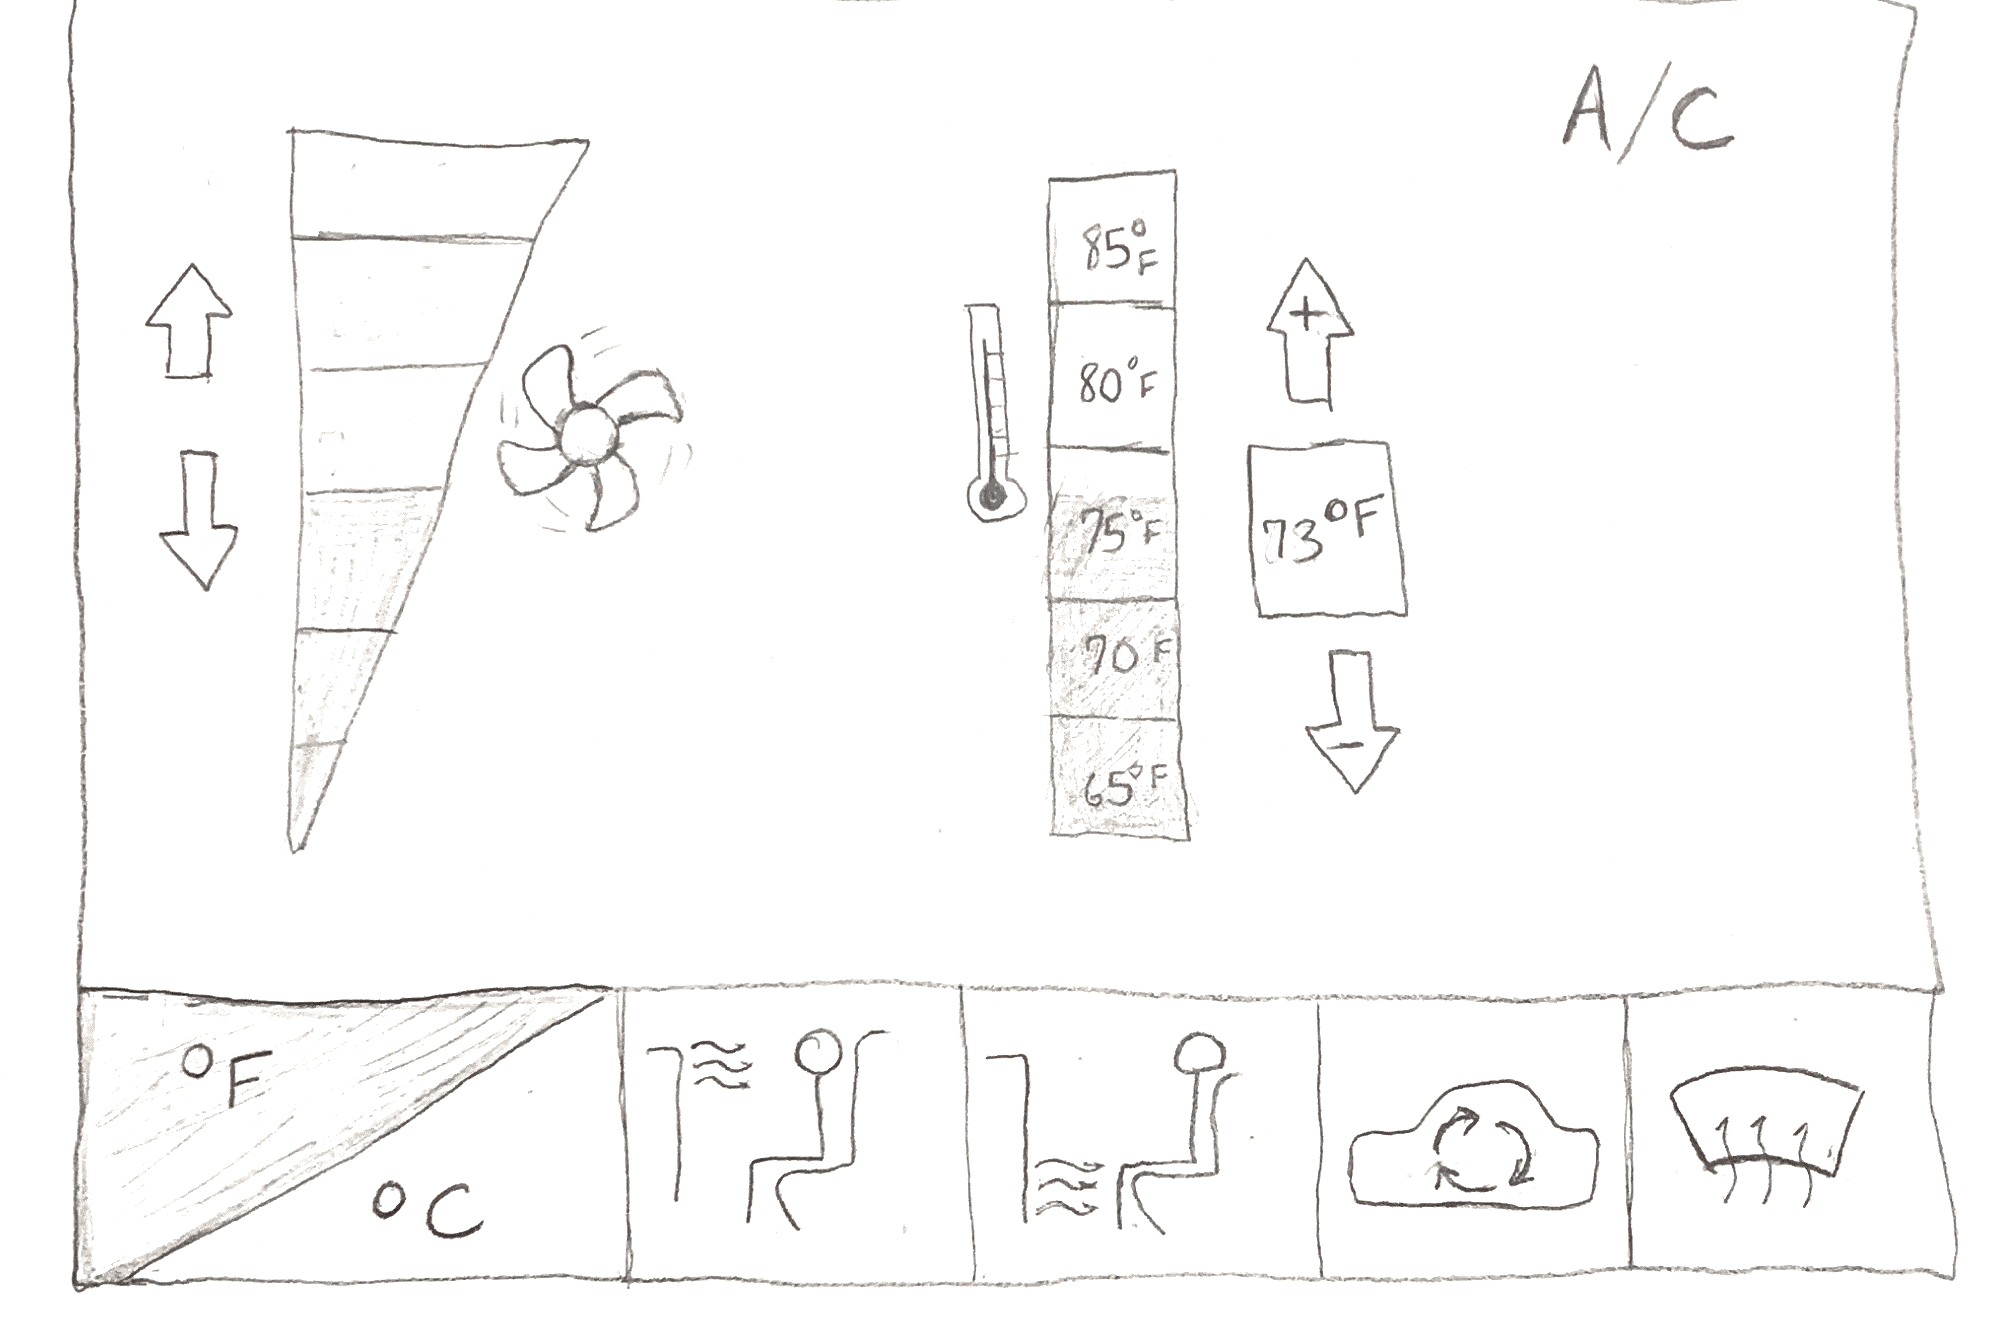 A/C
85°F
80°F
75°F
70 F
65°F
+
73°F
-
°F
°C